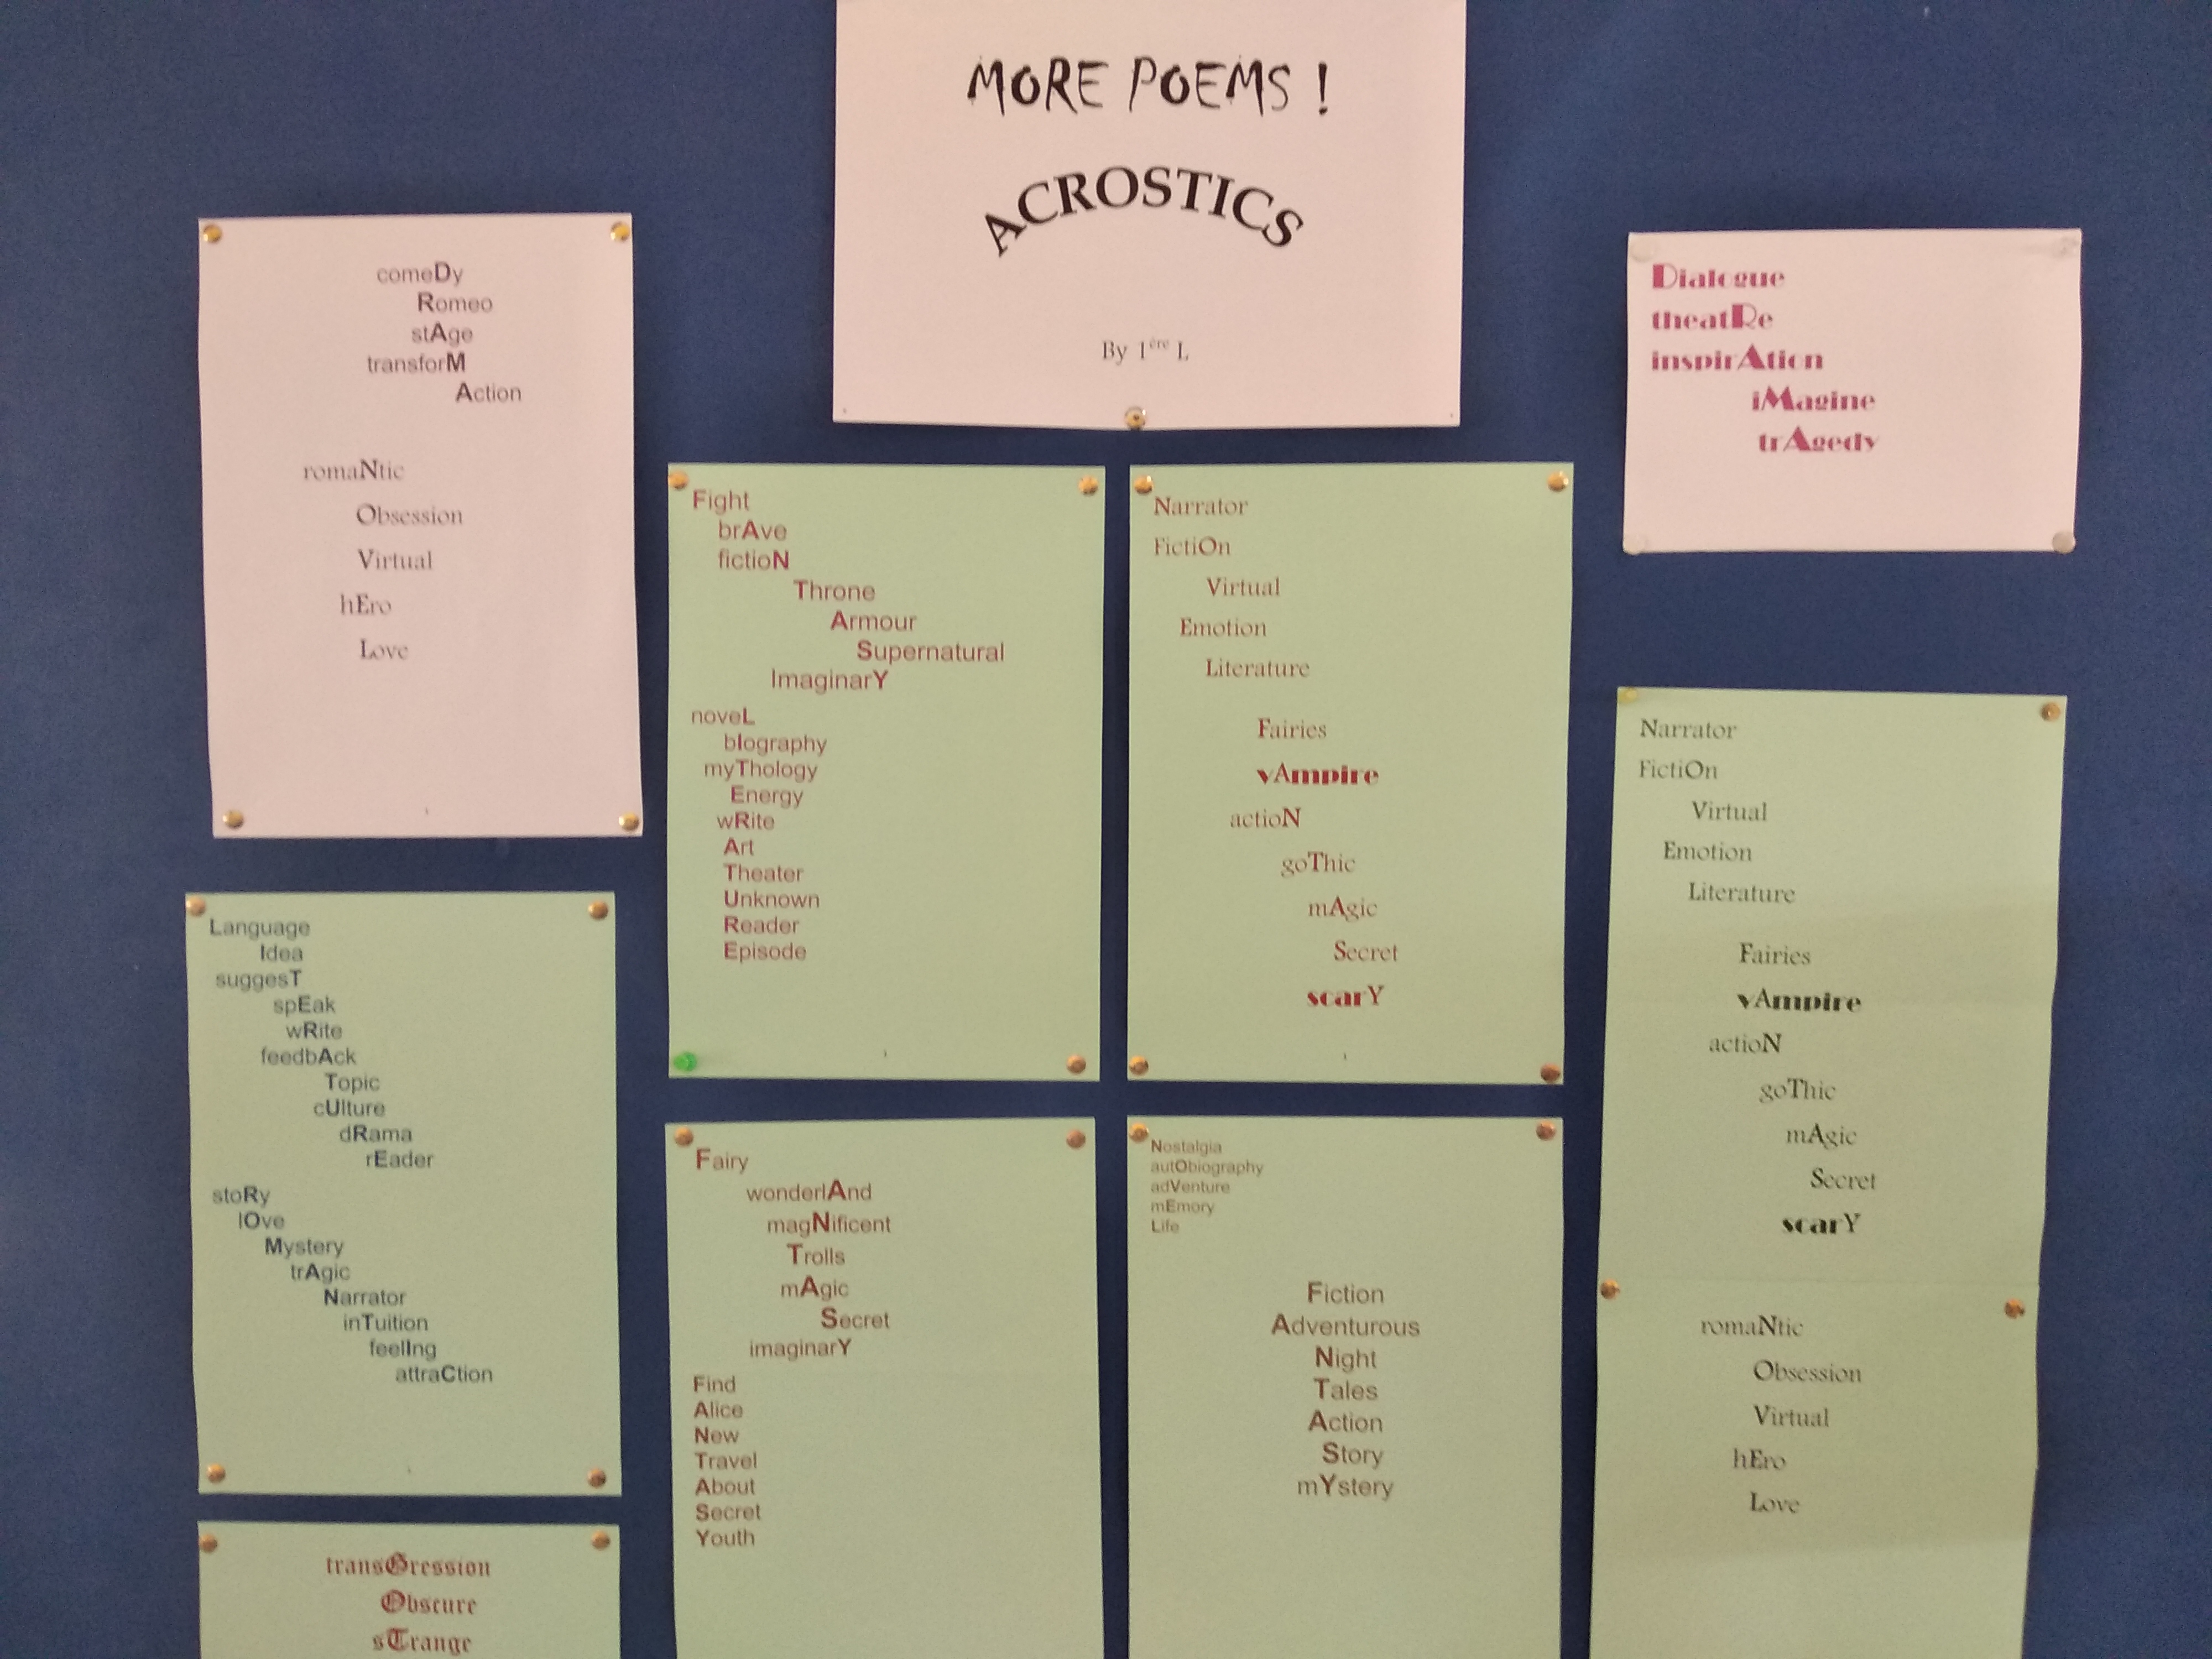 MORE POEMS !
ACROSTICS
By 1ère L
comeDy
Romeo
stAge
transforM
Action
romaNtic
Obsession
Virtual
hEro
Love
Language
Idea
suggesT
spEak
wRite
feedbAck
Topic
cUlture
dRama
rEader
stoRy
lOve
Mystery
trAgic
Narrator
inTuition
feelIng
attraCtion
transGression
Obscure
sTrange
Fight
brAve
fictioN
Throne
Armour
Supernatural
ImaginarY
noveL
bIography
myThology
Energy
wRite
Art
Theater
Unknown
Reader
Episode
Fairy
wonderlAnd
magNificent
Trolls
mAgic
Secret
imaginarY
Find
Alice
New
Travel
About
Secret
Youth
Narrator
FictiOn
Virtual
Emotion
Literature
Fairies
vAmpire
actioN
goThic
mAgic
Secret
scarY
Nostalgia
autObiography
adVenture
mEmory
Life
Fiction
Adventurous
Night
Tales
Action
Story
mYstery
Dialogue
theatRe
inspirAtion
iMagine
trAgedy
Narrator
FictiOn
Virtual
Emotion
Literature
Fairies
vAmpire
actioN
goThic
mAgic
Secret
scarY
romaNtic
Obsession
Virtual
hEro
Love